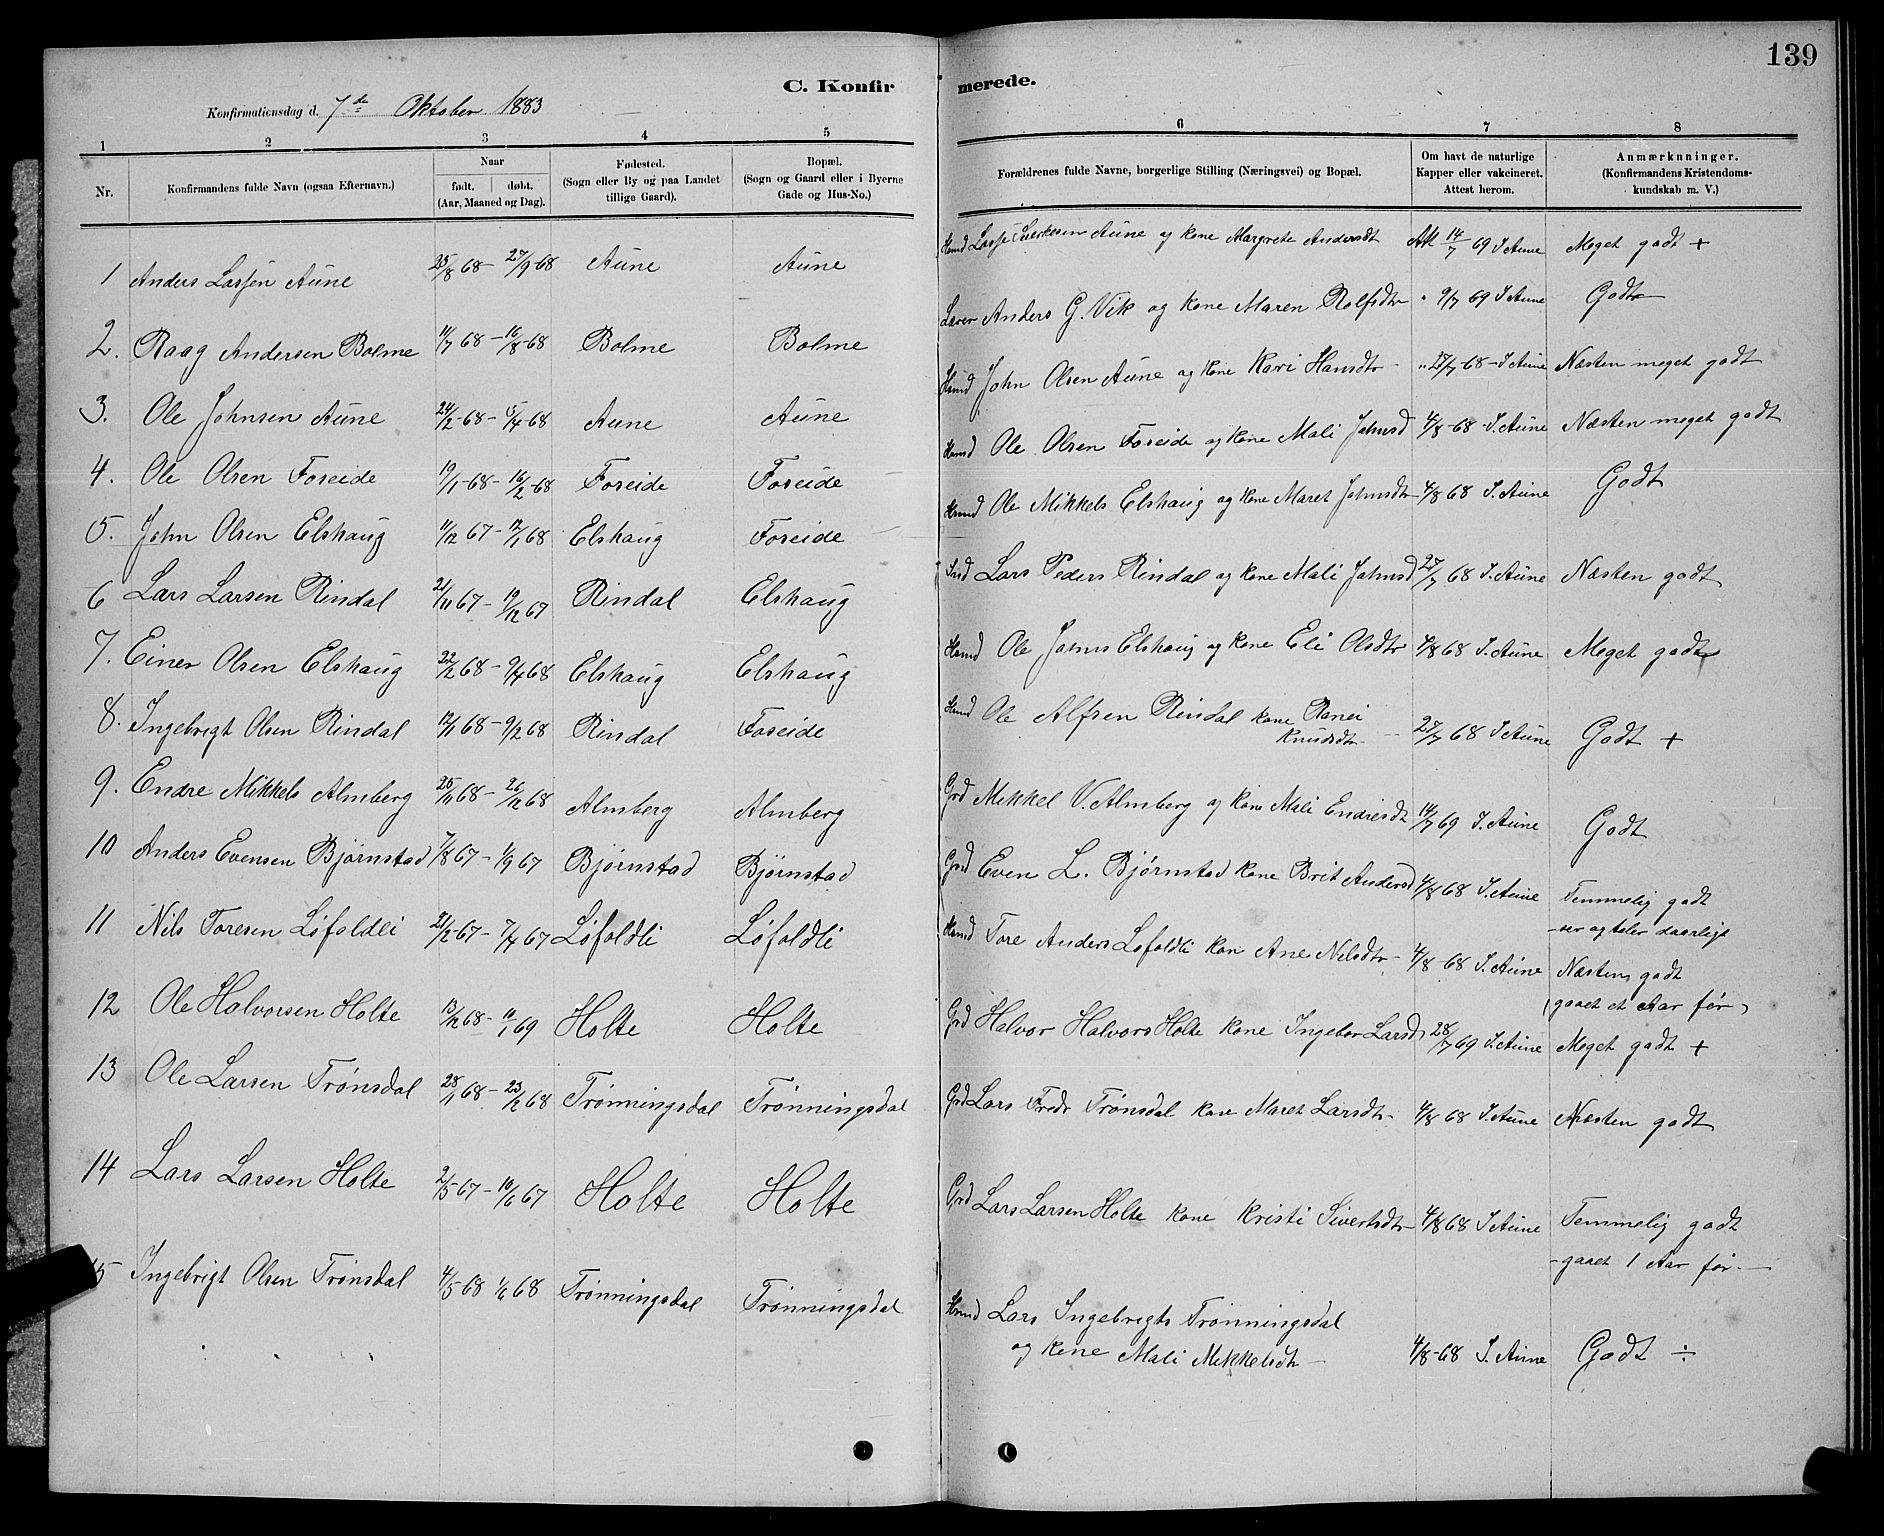 139
C. Konfir merede.
Konfirmationsdag d. 7de Oktober 1883
1 2 3 4 5 6 7 8
Nr. | Konfirmandens fulde Navn (ogsaa Efternavn.) | Naar født. døbt. (Aar, Maaned og Dag). | Fødested. (Sogn eller By og paa Landet tillige Gaard). | Bopæl. (Sogn og Gaard eller i Byerne Gade og Hus-No.) | Forældrenes fulde Navne, borgerlige Stilling (Næringsvei) og Bopæl. | Om havt de naturlige Kapper eller vakcineret. Attest herom. | Anmærkninger. (Konfirmandens Kristendoms-kundskab m. V.)
1 Anders Lassen Aune 25/8 68 - 27/9 68 Aune Aune Hmd Lasse Aune og kone Margrete Andersdt Att 14/7 69 I Aune Meget godt +
2. Raag Andersen Bolme 11/7 68 - 16/8 68 Bolme Bolme Lærer Anders G. Vik og kone Maren Rolfsdtr " 9/7 69 I Aune Godt
3. Ole Johnsen Aune 24/2 68 - 15/4 68 Aune Aune Hmd John Olsen Aune og kone Kari Hansdtr " 27/7 68 - I Aune Næsten meget godt
4. Ole Olsen Foseide 19/1 68 - 16/2 68 Foseide Foseide Hmd Ole Olsen Foseide og kone Mali Johnsd 4/8 68 I. Aune Næsten meget godt
5. John Olsen Elshaug 11/12 67 - 12/1 68 Elshaug Foseide Hmd Ole Mikkels Elshaug og kone Maret Johnsdtr 4/8 68 I. Aune Godt
6 Lars Larsen Rindal 21/11 67 - 19/12 67 Rindal Elshaug Ind Lars Peders Rindal og kone Mali Johnsd 27/7 68 I. Aune Næsten godt
7. Einer Olsen Elshaug 22/2 68 - 9/4 68 Elshaug Elshaug Hmd Ole Johns Elshaug og kone Eli Olsdtr 4/8 68 I. Aune Meget godt
8. Ingebrigt Olsen Rindal 12/1 68 - 9/2 68 Rindal Foseide Hmd Ole Alfsen Rindal kone Ranei Knudsdtr 27/7 68 I Aune Godt +
9. Endre Mikkels Almberg 25/11 68 - 26/12 68 Almberg Almberg Grd Mikkel V. Almberg og kone Mali Endresdt 14/7 69 I. Aune Godt
10 Anders Evensen Bjørnstad 7/8 67 - 1/9 67 Bjørnstad Bjørnstad Grd Even L. Bjørnstad kone Brit Andersd 4/8 68 I. Aune Temmelig godt
- ser og taler daarligt
11 Nils Toresen Løfaldli 21/2 67 - 7/4 67 Løfaldli Løfaldli Hmd Tore Anders Løfaldli kon Ane Nilsdtr - 4/8 68 I. Aune Næsten godt
(gaaet et Aar før)
12 Ole Halvorsen Holte 13/12 68 - 10/1 69 Holte Holte Grd Halvor Halvors Holte kone Ingebor Larsd 28/7 69 I. Aune Meget godt +
13 Ole Larsen Trønsdal 28/1 68 - 23/2 68 Trønningsdal Trønningsdal Grd Lars Fredr Trønsdal kone Maret Larsdtr - 4/8 68 I. Aune Næsten godt
14 Lars Larsen Holte 2/5 67 - 10/6 67 Holte Holte Grd Lars Larsen Holte kone Kristi Sivertsdtr 4/8 68 I Aune Temmelig godt
- gaaet 1 Aar før. -
15 Ingebrigt Olsen Trønsdal 4/5 68 1/6 68 Trønningsdal Trønningsdal Hmd Lars Ingebrigts Trønningsdal
og kone Mali Mikkelsdtr - 4/8 68 I. Aune Godt ÷